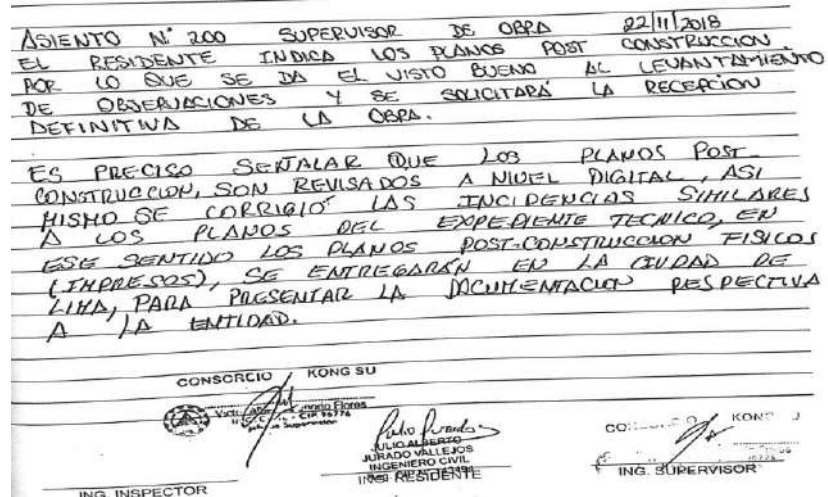 ASIENTO Nº 200 SUPERVISOR DE OBRA 22/11/2018
EL RESIDENTE INDICA LOS PLANOS POST CONSTRUCCION
POR LO QUE SE DA EL VISTO BUENO AL LEVANTAMIENTO
DE OBSERVACIONES Y SE SOLICITARÁ LA RECEPCION
DEFINITIVA DE LA OBRA.
ES PRECISO SEÑALAR QUE LOS PLANOS POST-
CONSTRUCCION, SON REVISADOS A NIVEL DIGITAL, ASI
MISMO SE CORRIGIÓ LAS INCIDENCIAS SIMILARES
A LOS PLANOS DEL EXPEDIENTE TECNICO, EN
ESE SENTIDO LOS PLANOS POST-CONSTRUCCION FISICOS
(IMPRESOS), SE ENTREGARÁN EN LA CIUDAD DE
LIMA, PARA PRESENTAR LA DOCUMENTACION RESPECTIVA
A LA ENTIDAD.
CONSORCIO KONG SU
Flores
CIP 96776
Supervisión
ING. INSPECTOR
Julio Jurado
JULIO ALBERTO
JURADO VALLEJOS
INGENIERO CIVIL
ING. RESIDENTE
KONG
ING. SUPERVISOR